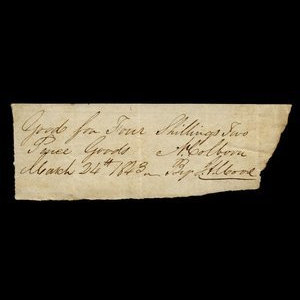 Good for Four Shillings Two
Pence Goods A. Colborn
March 24th 1843